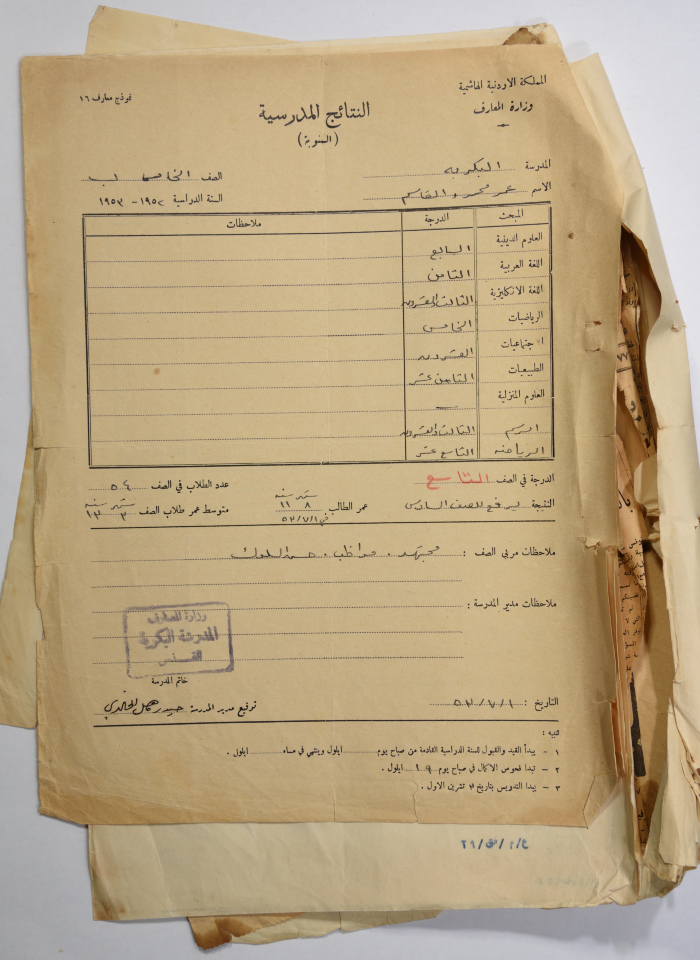 المملكة الاردنية الهاشمية
وزارة المعارف
نموذج معارف ١٦
النتائج المدرسية
(السنوية)
المدرسة البكرية
الصف الخامس ب
الاسم عمر محمود القاسم
السنة الدراسية ١٩٥٢ - ١٩٥٣
المبحث الدرجة ملاحظات
العلوم الدينية السابع
اللغة العربية الثامن
اللغة الانكليزية الثالث والعشرون
الرياضيات الخامس
الاجتماعيات العشرون
الطبيعيات الثامن عشر
العلوم المنزلية —
الرسم الثالث والعشرون
الرياضة التاسع عشر
الدرجة في الصف التاسع
عدد الطلاب في الصف ٥٤
النتيجة يرفع للصف السادس
عمر الطالب شهر ٨ سنة ١١
في ٥٣/٧/١
متوسط عمر طلاب الصف شهر ٣ سنة ١٣
ملاحظات مربي الصف : مجتهد . مواظب . حسن السلوك
ملاحظات مدير المدرسة :
وزارة المعارف
المدرسة البكرية
القدس
خاتم المدرسة
التاريخ : ٥٣/٧/١
توقيع مدير المدرسة
تنبيه :
١ - يبدأ القيد والقبول للسنة الدراسية القادمة من صباح يوم ايلول وينتهي في مساء ايلول .
٢ - تبدا فحوص الاكمال في صباح يوم ١٩ ايلول .
٣ - يبدا التدريس بتاريخ تشرين الاول .